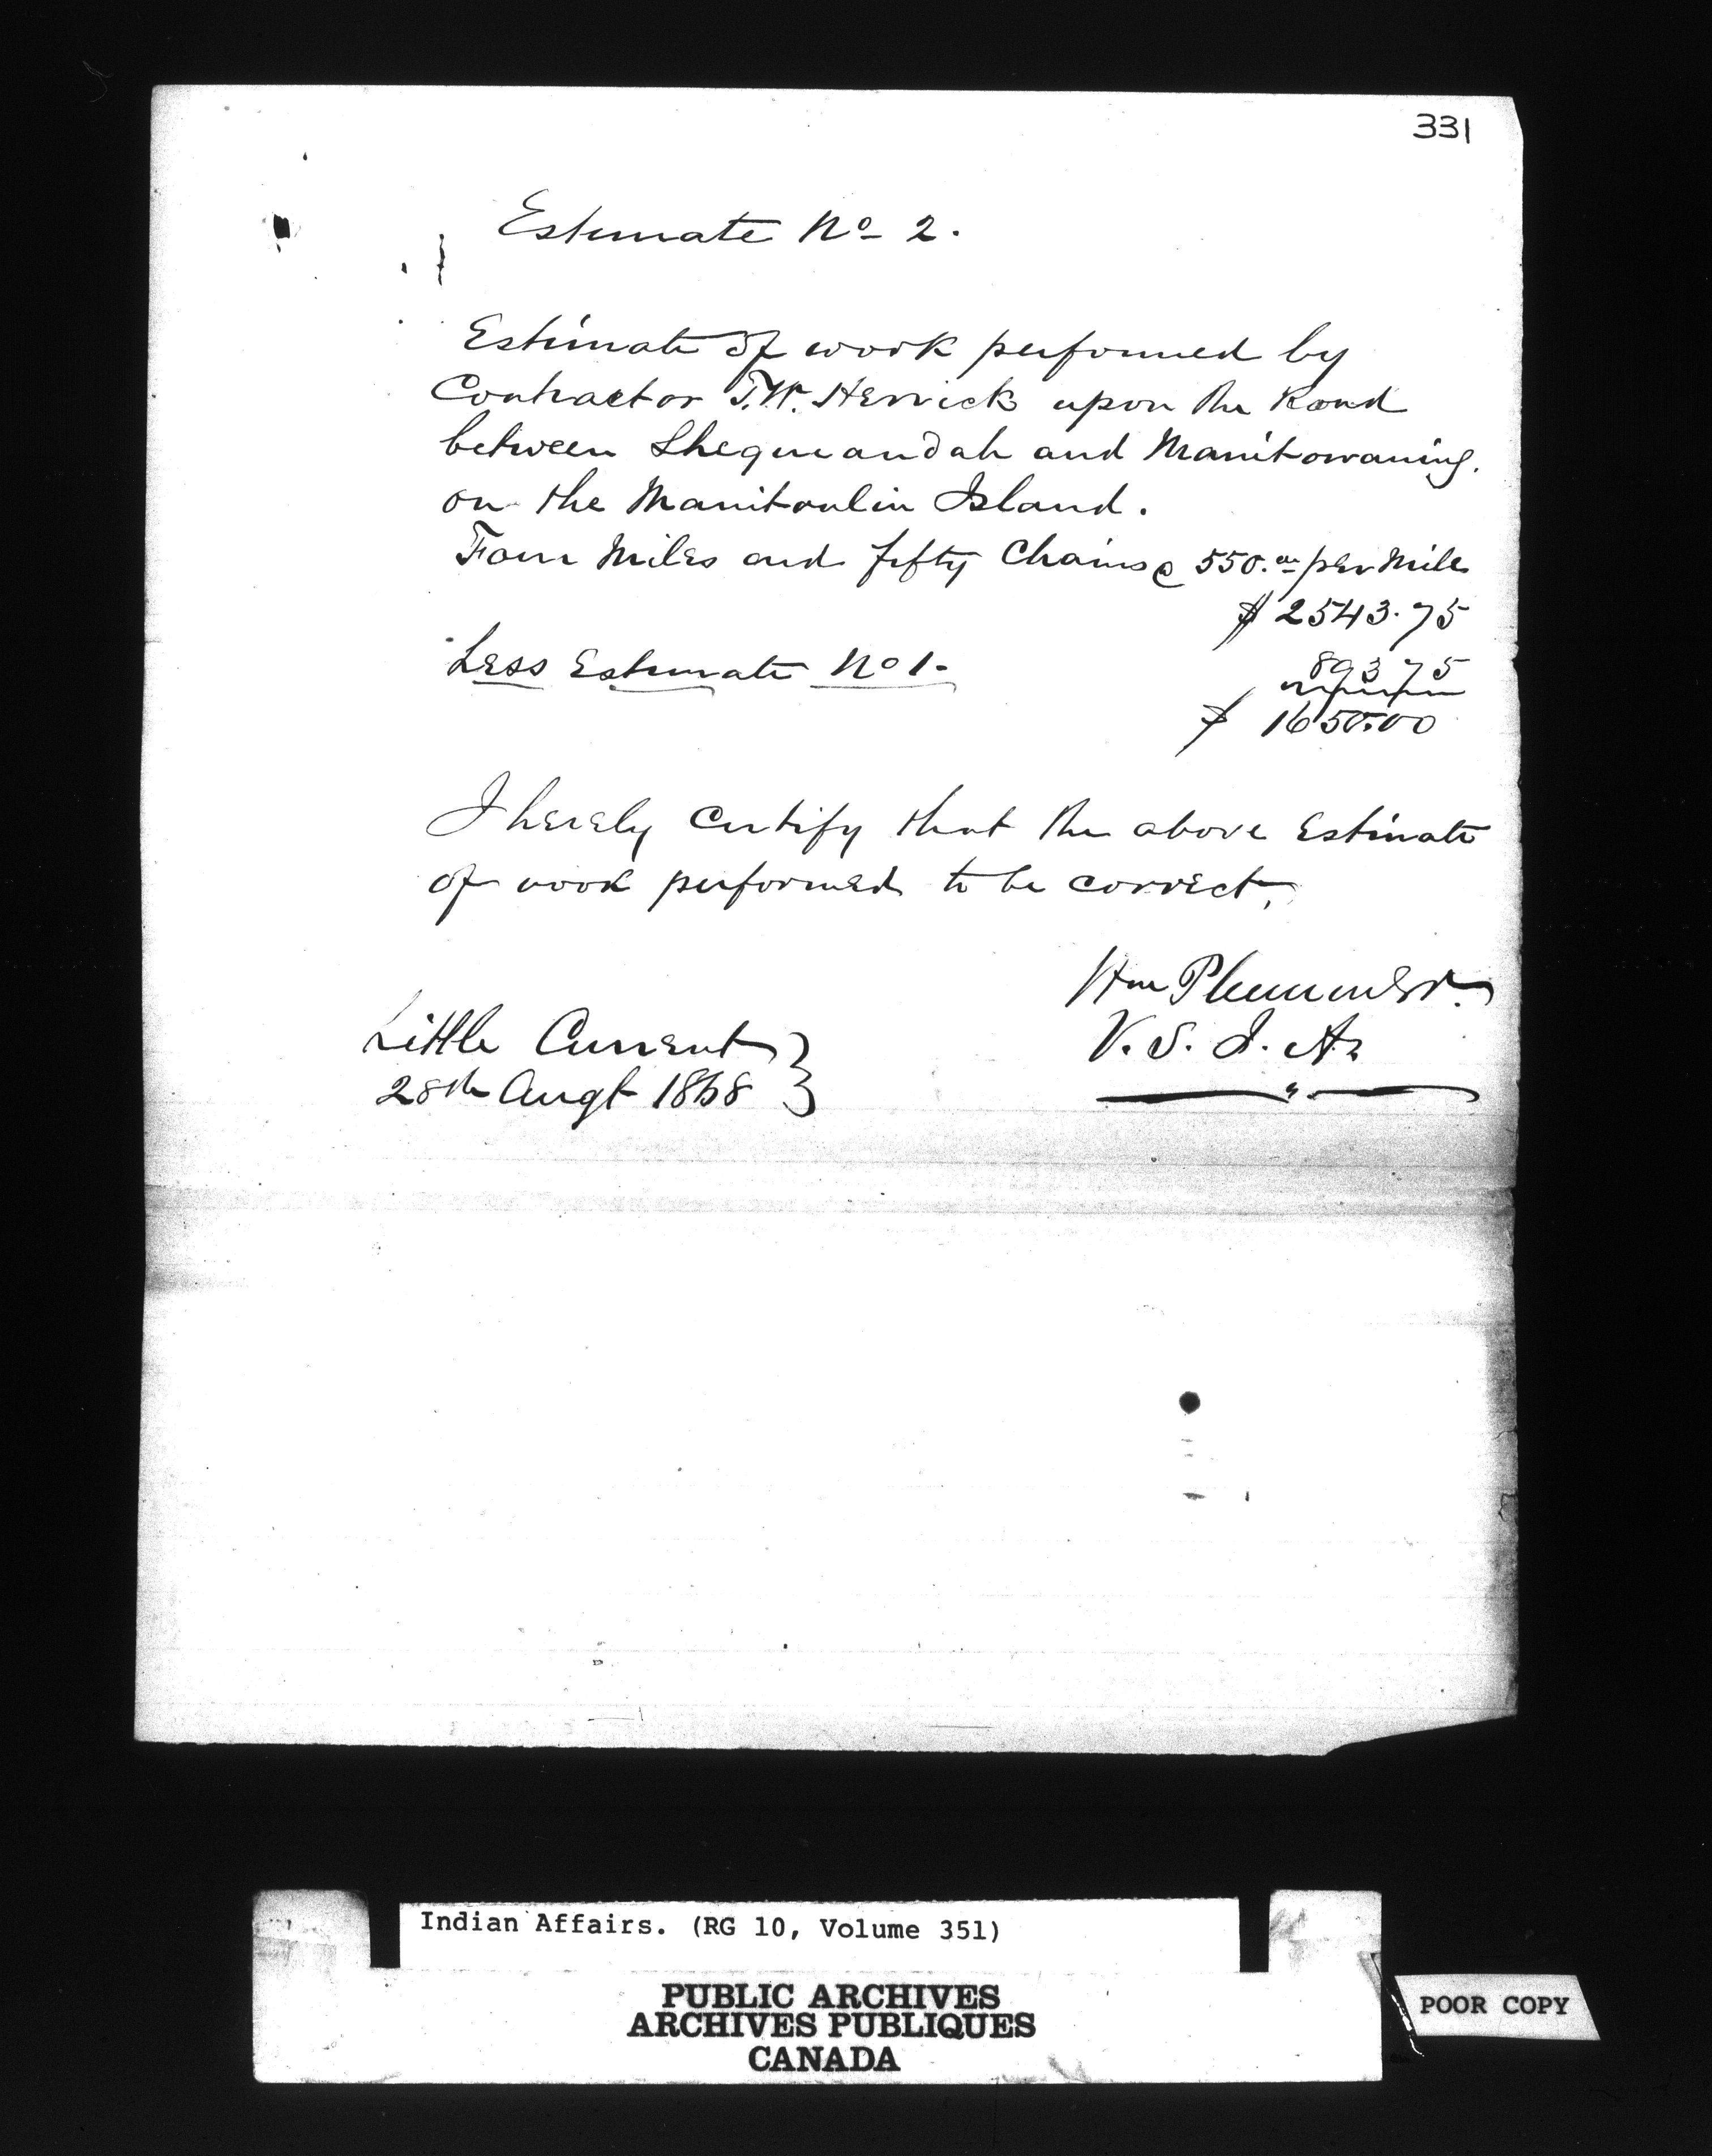 331
Estimate No 2.
Estimate of work performed by
Contractor T.W. Herrick upon the Road
between Shequeandah and Manitowaning.
on the Manitoulin Island.
Four Miles and fifty Chains @ 550.00 per Mile
$ 2543.75
Less Estimate No 1.
893 75
$ 1650.00
I hereby certify that the above Estimate
of work performed to be correct.
Wm Plummer.
V. S. I. A.
Little Current
28th Augt 1868
Indian Affairs. (RG 10, Volume 351)
PUBLIC ARCHIVES
ARCHIVES PUBLIQUES
CANADA
POOR COPY